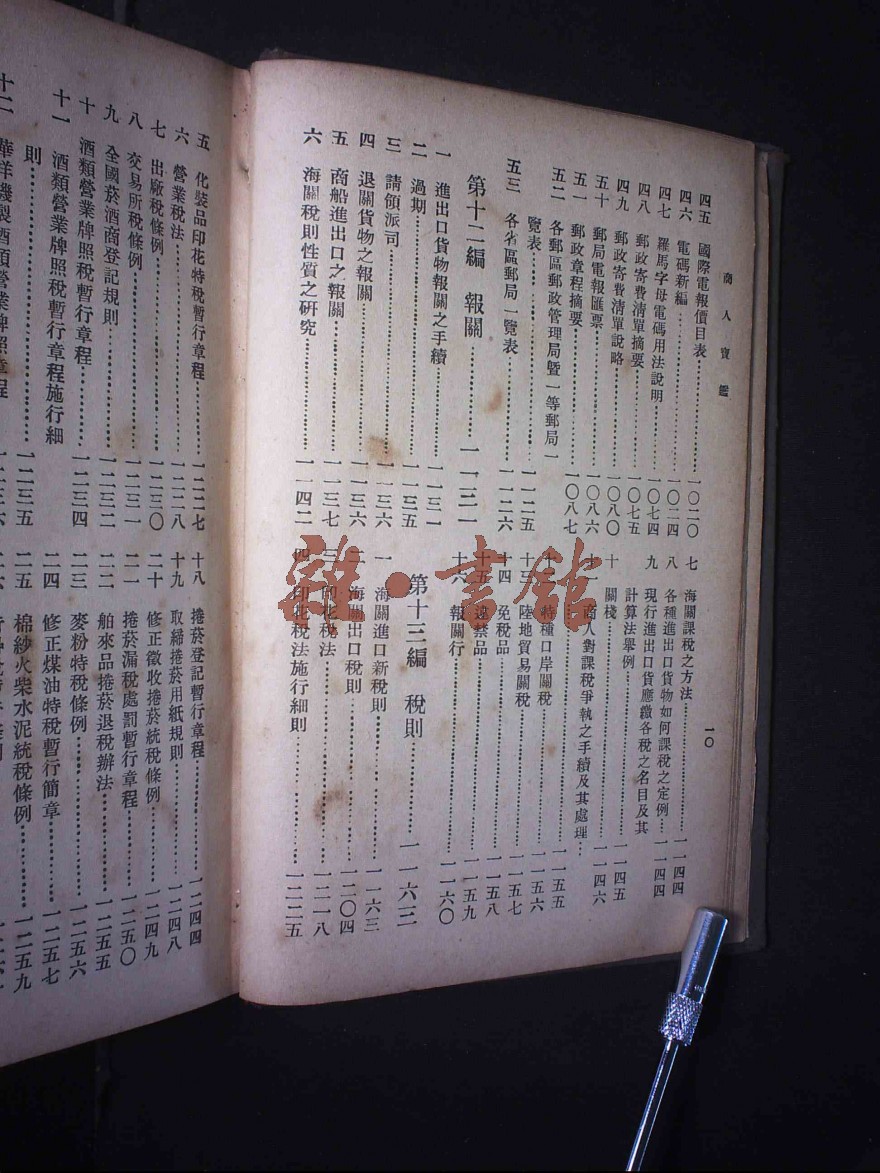 商人寶鑑
一〇
四五 國際電報價目表 一〇二〇
四六 電碼新編 一〇二四
四七 羅馬字母電碼用法說明 一〇七四
四八 郵政寄費清單摘要 一〇七五
四九 郵政寄費清單說略 一〇八〇
五十 郵局電報匯票 一〇八六
五一 郵政章程摘要 一〇八七
五二 各郵區郵政管理局暨一等郵局一
覽表 一一二五
五三 各省區郵局一覽表 一一二六
第十二編 報關 一一三一
一 進出口貨物報關之手續 一一三一
二 過期 一一三五
三 請領派司 一一三六
四 退關貨物之報關 一一三六
五 商船進出口之報關 一一三七
六 海關稅則性質之研究 一一四二
七 海關課稅之方法 一一四四
八 各種進出口貨物如何課稅之定例 一一四四
九 現行進出口貨應繳各稅之名目及其
計算法舉例 一一四五
十 關棧 一一四六
十一 商人對課稅爭執之手續及其處理
一一五五
十二 特種口岸關稅 一一五六
十三 陸地貿易關稅 一一五七
十四 免稅品 一一五八
十五 違禁品 一一五九
十六 報關行 一一六〇
第十三編 稅則 一一六三
一 海關進口新稅則 一一六三
二 海關出口稅則 一二〇四
三 印花稅法 一二一八
四 印花稅法施行細則 一二二五
五 化裝品印花特稅暫行章程 一二二七
六 營業稅法 一二二八
七 出廠稅條例 一二三〇
八 交易所稅條例 一二三一
九 全國菸酒商登記規則 一二三四
十 酒類營業牌照稅暫行章程 一二三四
十一 酒類營業牌照稅暫行章程施行細
則 一二三五
十二 華洋機製酒類營業牌照章程 一二三六
十八 捲菸登記暫行章程 一二四四
十九 取締捲菸用紙規則 一二四八
二十 修正徵收捲菸統稅條例 一二四九
二一 捲菸漏稅處罰暫行章程 一二五〇
二二 舶來品捲菸退稅辦法 一二五五
二三 麥粉特稅條例 一二五六
二四 修正煤油特稅暫行簡章 一二五七
二五 棉紗火柴水泥統稅條例 一二五九
二六
雜·書館